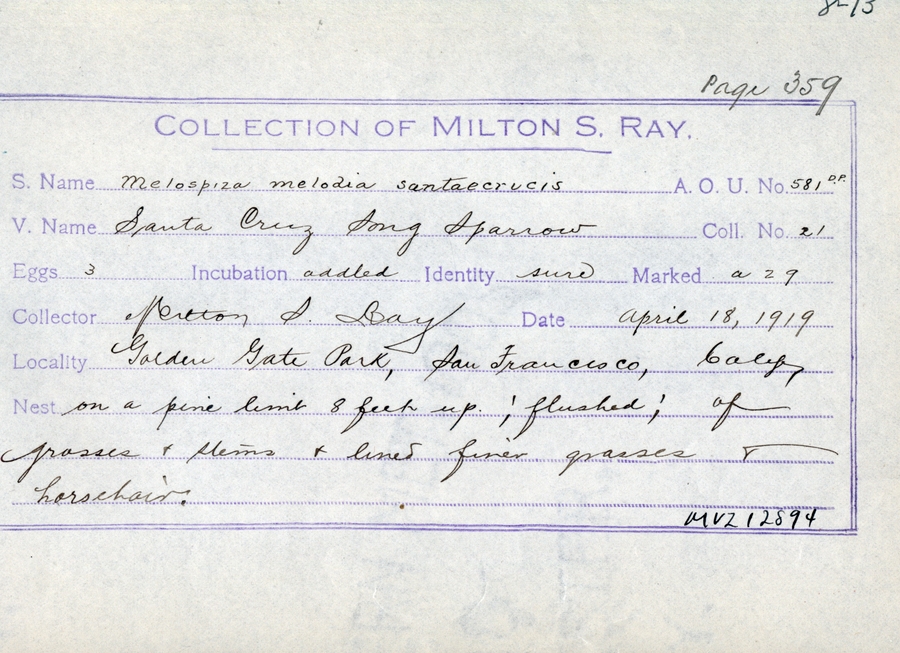 8-13
Page 359
COLLECTION OF MILTON S. RAY.
S. Name Melospiza melodia santaecrucis A. O. U. No. 581 D.P.
V. Name Santa Cruz Song Sparrow Coll. No. 21
Eggs 3 Incubation addled Identity sure Marked a 29
Collector Milton S. Ray Date April 18, 1919
Locality Golden Gate Park, San Francisco, Calif,
Nest on a pine limb 8 feet up. ; flushed; of
grasses & stems & lined finer grasses &
horsehair.
MVZ 12894